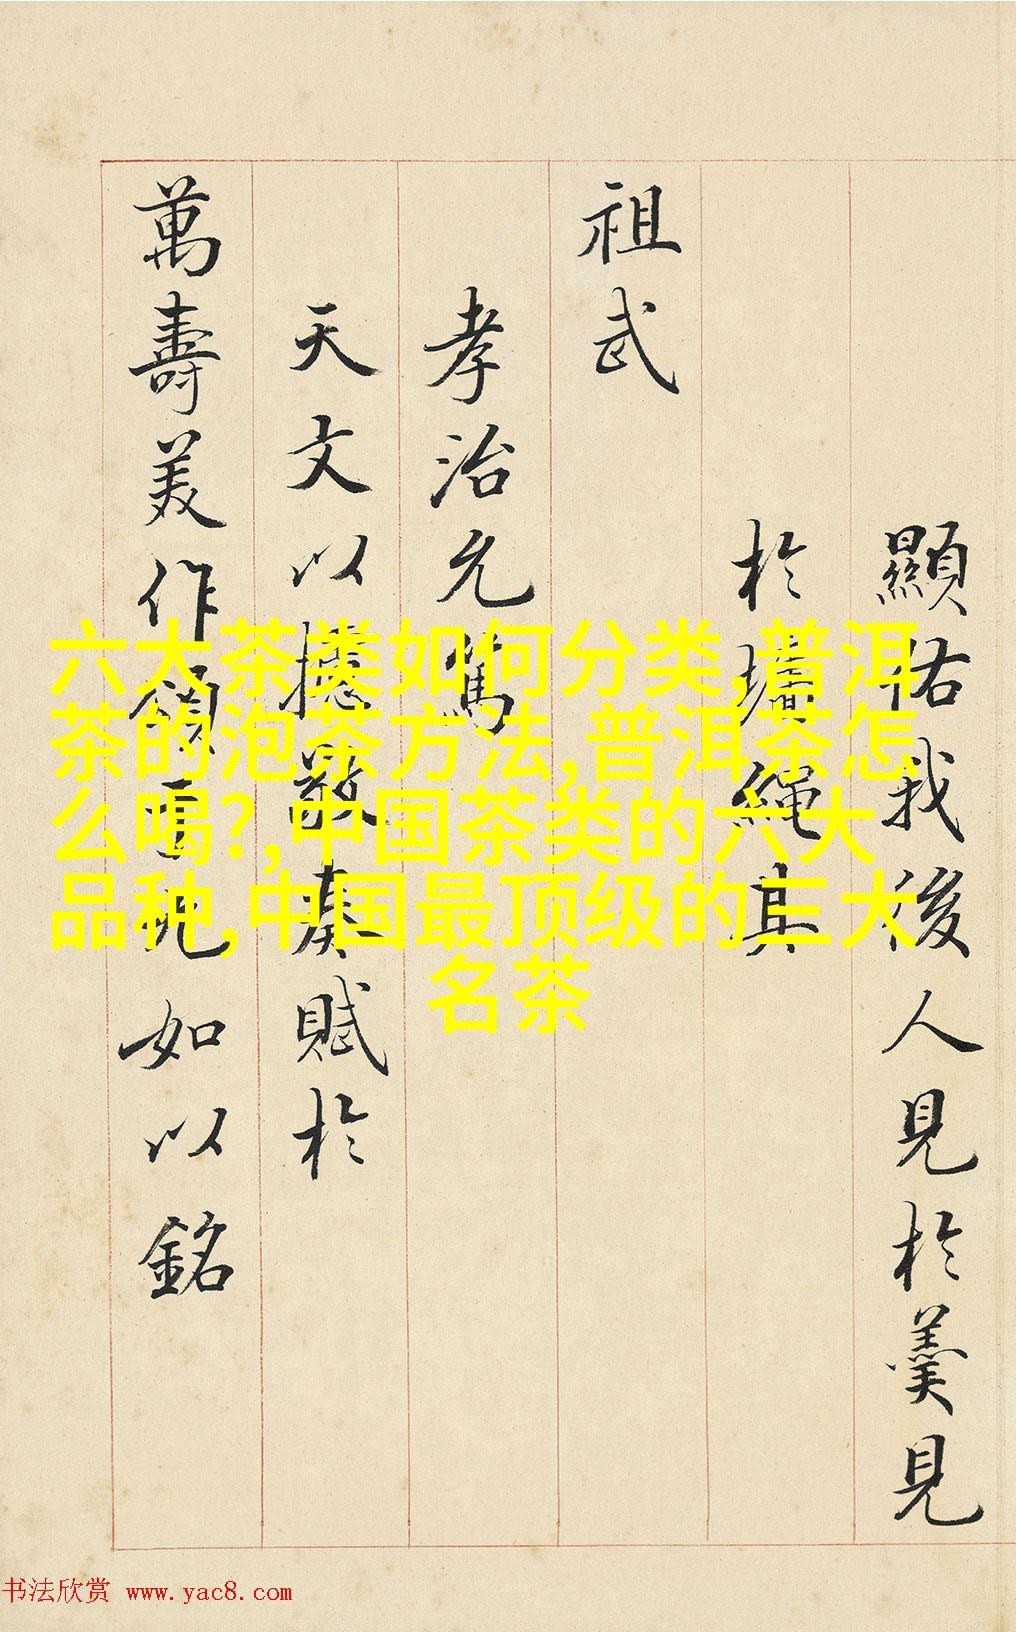 顯佑我後人見於羹見
於墻繩其
祖武
孝治允篤
天文以奏賦於
萬壽美作頌如以銘
六大茶类如何分类,普洱
茶的泡茶方法,普洱茶怎
么喝?,中国茶类的六大
品种,中国最顶级的三大
名茶
书法欣赏 www.yac8.com